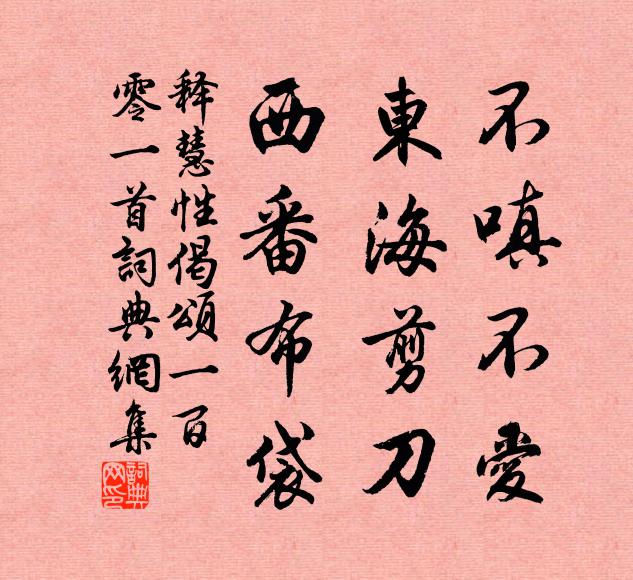 不嗔不愛
東海剪刀
西番布袋
释慧性偈頌一百
零一首詞典網集
詞典网印